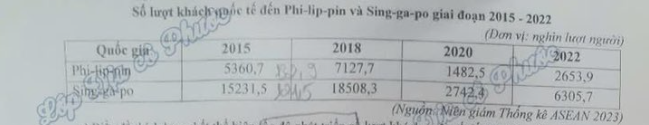 Số lượt khách quốc tế đến Phi-lip-pin và Sing-ga-po giai đoạn 2015 - 2022
(Đơn vị: nghìn lượt người)
Quốc gia 2015 2018 2020 2022
Phi-lip-pin 5360,7 7127,7 1482,5 2653,9
Sing-ga-po 15231,5 18508,3 2742,4 6305,7
(Nguồn: Niên giám Thống kê ASEAN 2023)